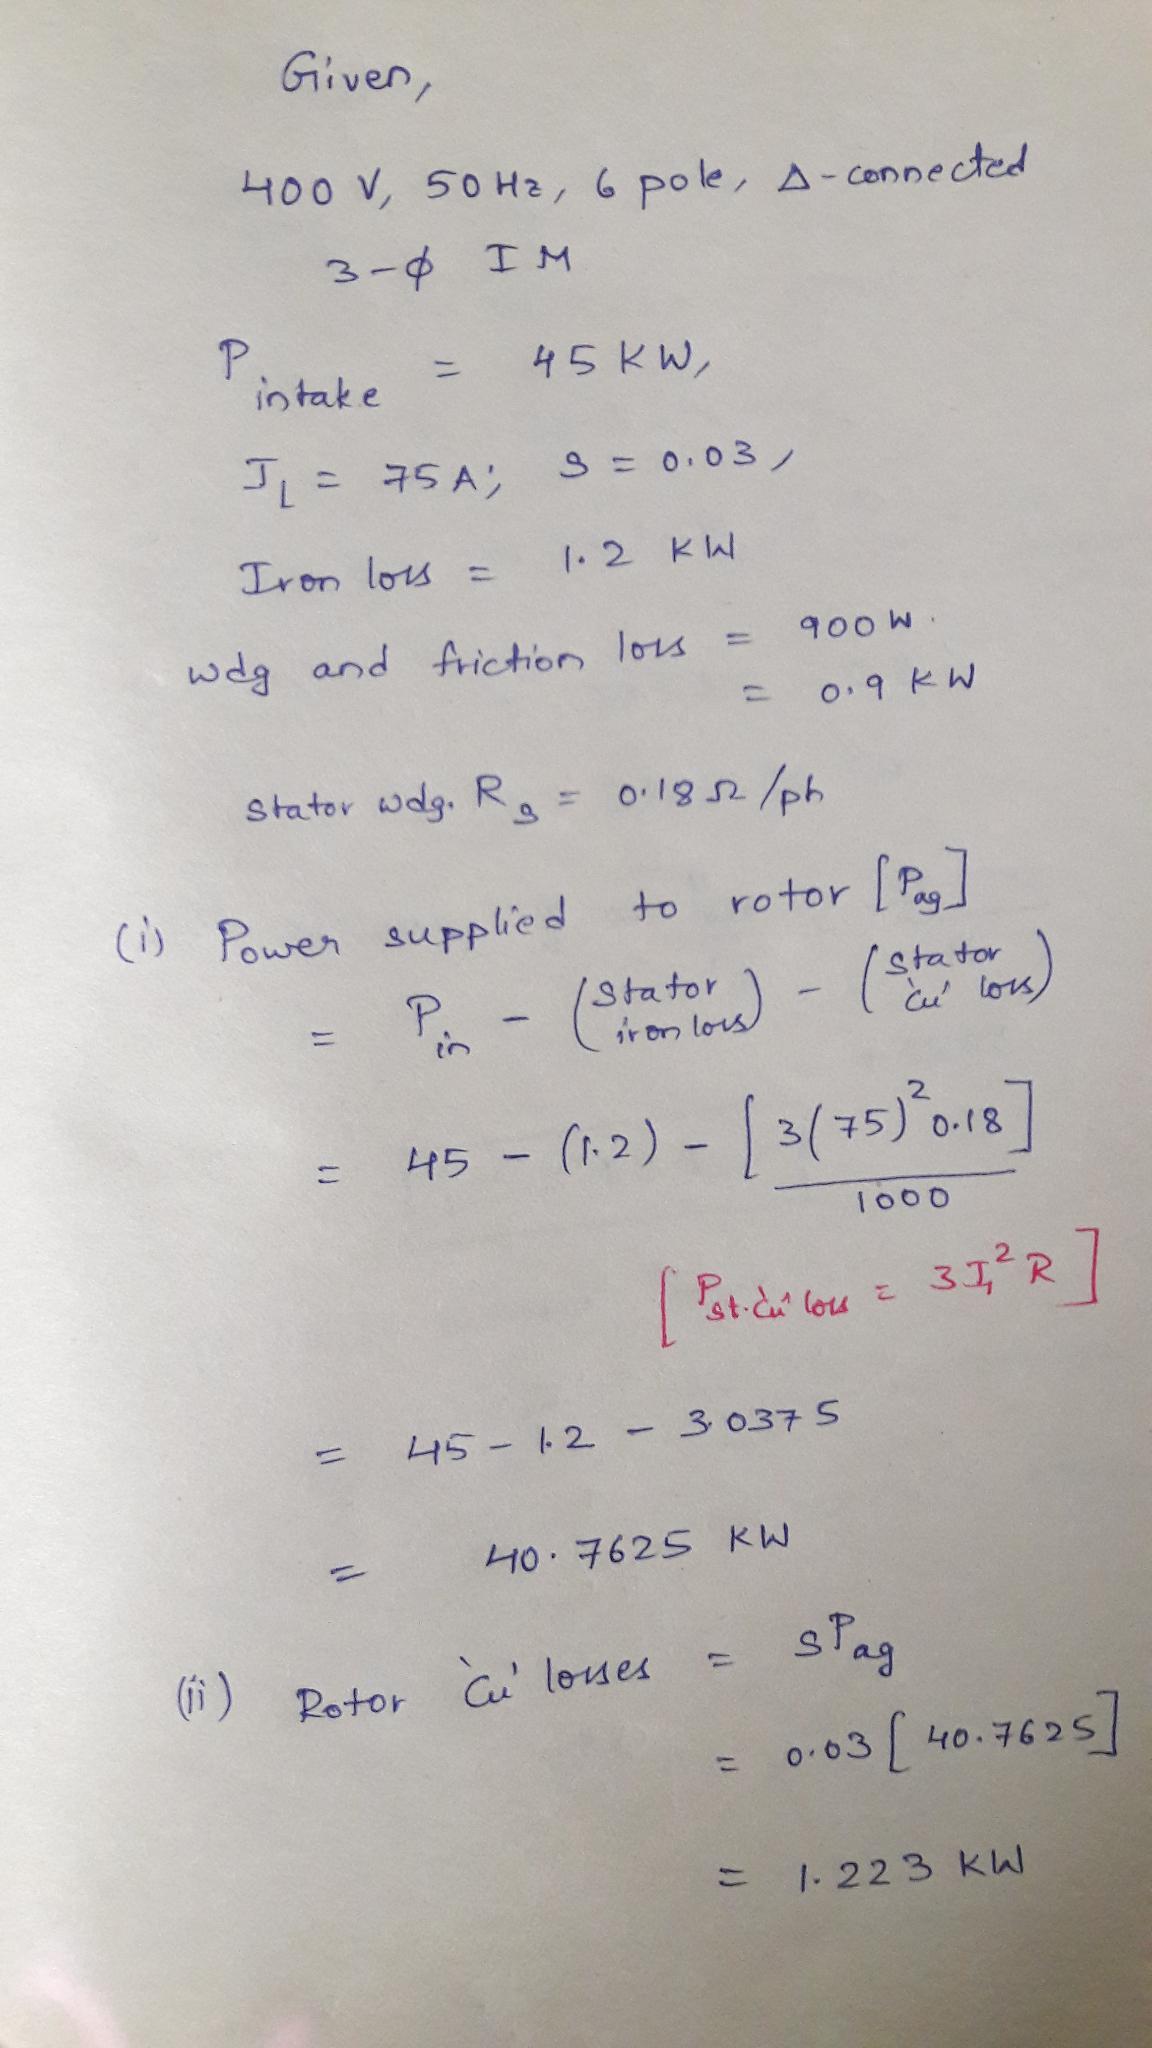 Given,
400 V, 50 Hz, 6 pole, Δ-connected
3-ϕ IM
P intake = 45 KW,
I_L = 75 A; s = 0.03,
Iron loss = 1.2 KW
wdg and friction loss = 900 W.
= 0.9 KW
Stator wdg. R_s = 0.18 Ω/ph
(i) Power supplied to rotor [P_ag]
= P_in - (Stator iron loss) - (Stator 'cu' loss)
= 45 - (1.2) - [3(75)² 0.18]/1000
[P_st.'cu' loss = 3I₁²R]
= 45 - 1.2 - 3.0375
= 40.7625 KW
(ii) Rotor 'cu' losses = sP_ag
= 0.03 [40.7625]
= 1.223 KW